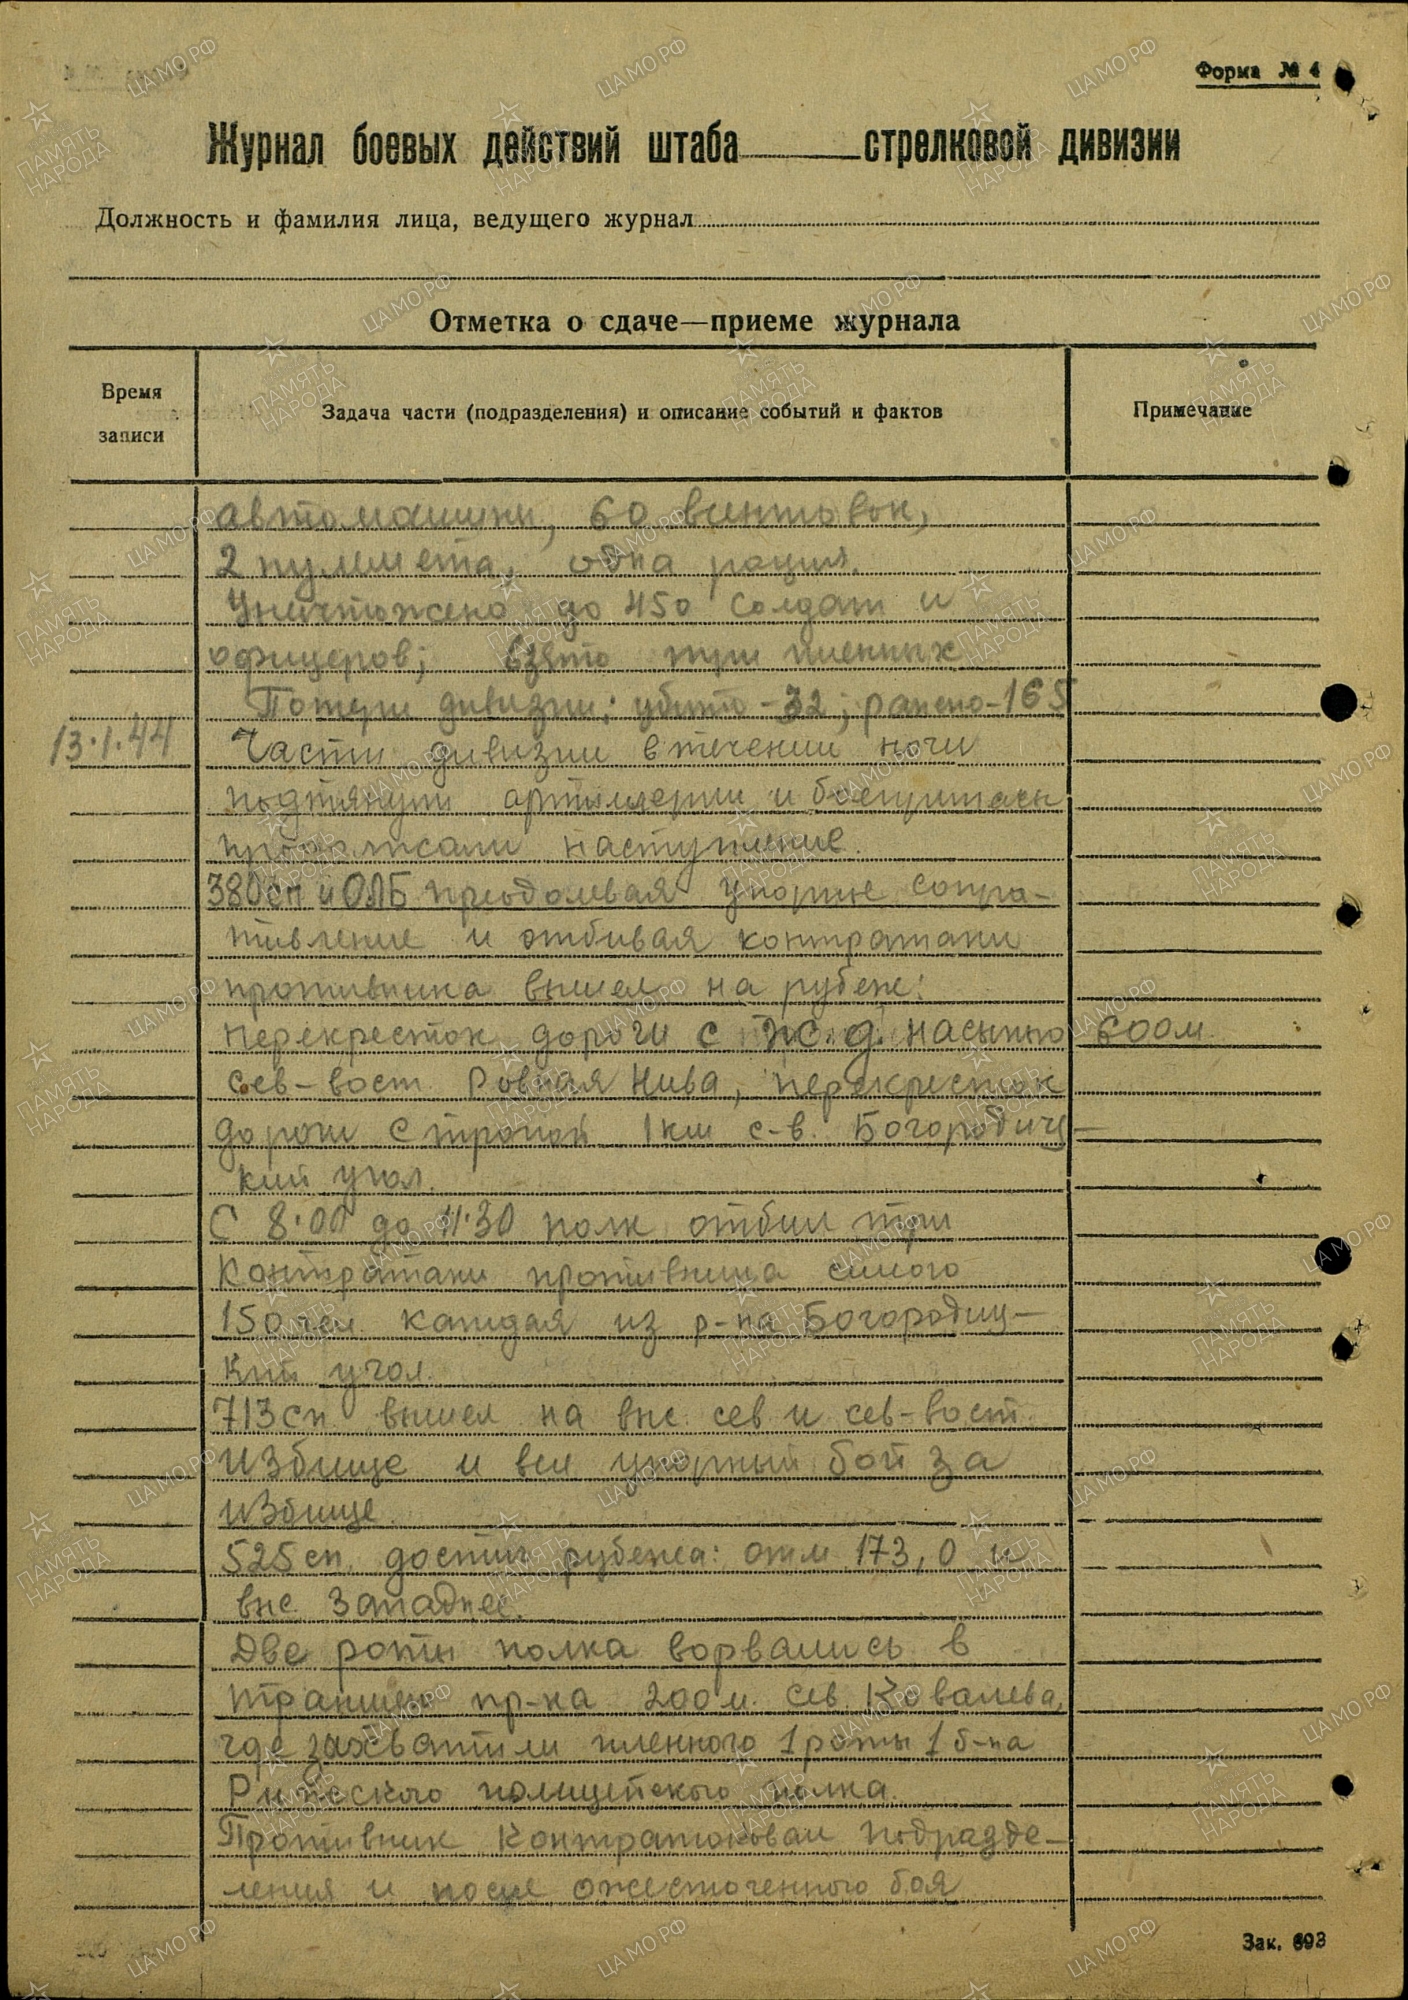 Форма № 4
Журнал боевых действий штаба стрелковой дивизии
Должность и фамилия лица, ведущего журнал
Отметка о сдаче—приеме журнала
Время записи
Задача части (подразделения) и описание событий и фактов
Примечание
автомашин, 60 винтовок,
2 пулемета, одна рация.
Уничтожено до 450 солдат и
офицеров; взято три пленных
Потери дивизии: убито - 32; ранено - 165
13.1.44 Части дивизии в течении ночи
подтянули артиллерию и боеприпасы
продолжали наступление.
380 сп и ОЛБ преодолевая упорное сопро-
тивление и отбивая контратаки
противника вышел на рубеж:
перекресток дороги с ж.д. насыпью 600м
сев-вост. Ровная Нива, перекресток
дороги с тропой 1 км с-в. Богородиц-
кий угол.
С 8.00 до 11.30 полк отбил три
контратаки противника силою
150 чел. каждая из р-на Богородиц-
кий угол.
713 сп. вышел на выс. сев и сев-вост.
Избище и вел упорный бой за
Избище.
525 сп. достиг рубежа: отм 173,0 и
выс. западнее.
Две роты полка ворвались в
траншеи пр-ка 200 м. сев. Ковалева,
где захватили пленного 1 роты 1 б-на
Рижского полицейского полка.
Противник контратаковал подразде-
ления и после ожесточенного боя
Зак. 693
ПАМЯТЬ НАРОДА
ЦАМО.РФ